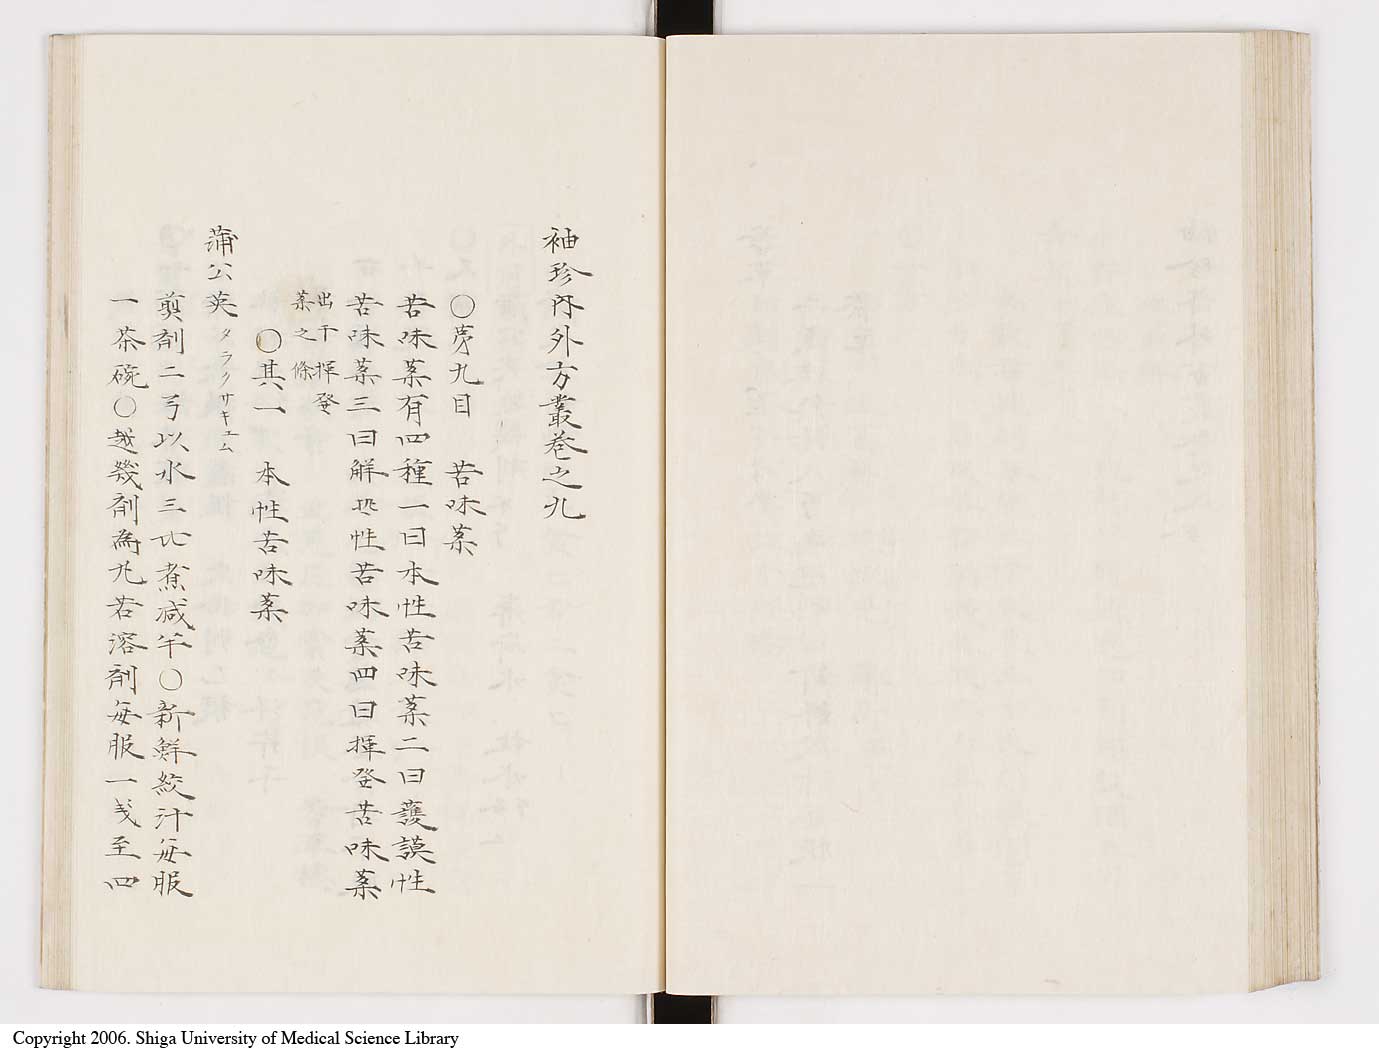 袖珍內外方叢卷之九
○第九目 苦味藥
苦味藥有四種一曰本性苦味藥二曰護謨性
苦味藥三曰解凝性苦味藥四曰揮發苦味藥
出于揮發
藥之條
○其一 本性苦味藥
蒲公英タラクサキュム
煎剤二弓以水三比煮减半○新鮮絞汁每服
一茶碗○越幾剤為丸若溶剤每服一戔至四
Copyright 2006. Shiga University of Medical Science Library